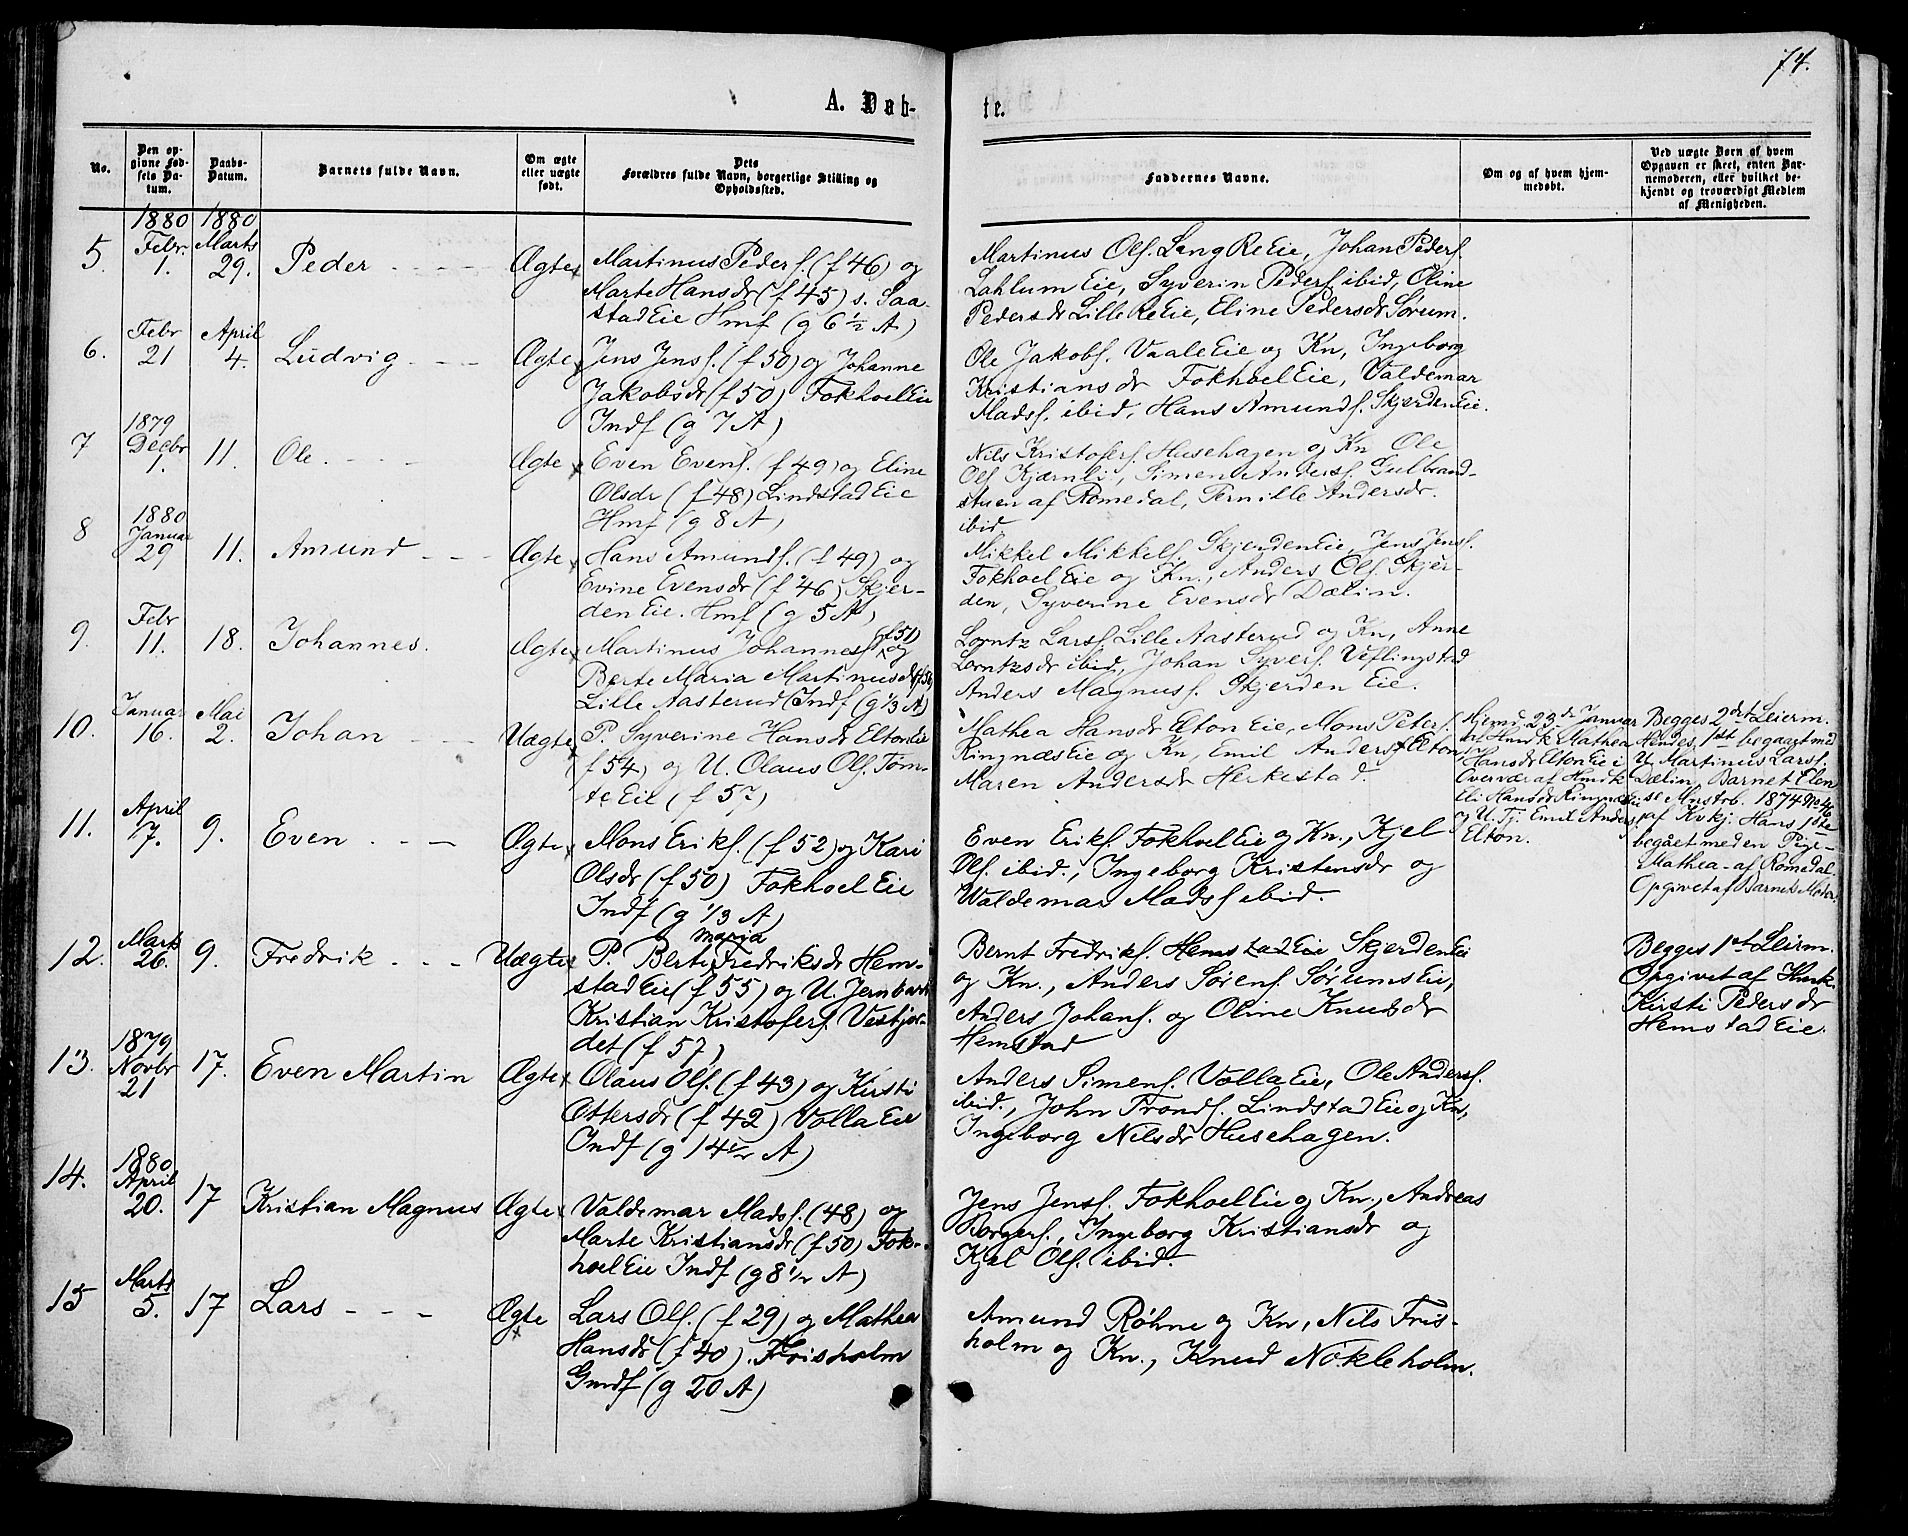 74.
A. Døb-
te.
No.
Den op-
givne Fød-
sels Da-
tum.
Daabs-
Datum.
Barnets fulde Navn.
Om ægte
eller uægte
født.
Dets
Forældres fulde Navn, borgerlige Stilling og
Opholdssted.
Faddernes Navne.
Om og af hvem hjem-
medøbt.
Ved uægte Børn af hvem
Opgaven er skeet, enten Bar-
nemoderen, eller hvilket be-
kjendt og troværdigt Medlem
af Menigheden.
5.
1880
Febr.
1.
1880
Marts
29.
Peder
Ægte
Martinus Peders. (f 46) og
Marte Hansdr (f 45) s. Saa-
stad Eie Hmf (g 6 1/2 A)
Martinus Ols. Lang Re Eie, Johan Peders.
Lahlum Eie, Syverin Peders ibid, Oline
Pedersdr Lille Re Eie, Eline Pedersdr Sørum.
6.
Febr
21
April
4.
Ludvig
Ægte
Jens Jens. (f 50) og Johanne
Jakobsdr (f 50) Fokhoel Eie
Indf (g 7 A)
Ole Jakobs. Vaale Eie og Kn, Ingeborg
Kristiansdr Fokhoel Eie, Valdemar
Mads. ibid, Hans Amunds. Skjerden Eie.
7
1879
Decbr
1.
11.
Ole.
Ægte
Even Evens. (f 49) og Eline
Olsdr (f 48) Lindstad Eie
Hmf (g 8 A)
Nils Kristofers. Husehagen og Kn Ole
Ols. Kjærnli, Simen Anders. Gulbrand-
stuen af Romedal, Pernille Andersdr.
ibid
8
1880
Januar
29
11.
Amund
Ægte
Hans Amunds. (f 49) og
Evine Evensdr (f 46) Skjer-
den Eie. Hmf (g 5 A)
Mikkel Mikkels. Skjerden Eie, Jens Jens.
Fokhoel Eie og Kn., Anders Ols. Skjer-
den, Syverine Evensdr Dælin.
9.
Febr
11.
18.
Johannes.
Ægte
Martinus Johannes. (f 51) og
Berte Maria Martinusdr (f 56)
Lille Aasterud Indf (g 1/3 A)
Lorntz Lars. Lille Aasterud og Kn, Anne
Lorntzsdr ibid., Johan Syvers. Veflingstad
Anders Magnus. Skjerden Eie.
10.
Januar
16.
Mai
2.
Johan
Uægte
P. Syverine Hansdr Elton Eie
(f 54) og U. Olaus Ols. Tom-
te Eie (f 57)
Mathea Hansdr Elton Eie, Mons Peters.
Ringnæs Eie og Kn, Emil Anders. Elton
Maren Andersdr Herkestad.
Hjemd. 23de Januar
af Hmdk Mathea
Hansdr Elton Eie i
Overvær af Hmdk
Eli Hansdr Ringnæs Eie
og U. Tj. Emil Anders.
Elton.
Begges 2det Leierm.
Hendes 1st begaaet med
U. Martinus Lars.
Dælin, Barnet Elen
se Mnstrb. 1874 No 46
af Kvkj. Hans 1ste
begået med en Pige-
Mathea - af Romedal.
Opgivet af Barnets Moder.
11.
April
7.
9.
Even
Ægte
Mons Eriks. (f 52) og Kari
Olsdr (f 50) Fokhoel Eie
Indf (g 1/3 A)
Even Eriks. Fokhoel Eie og Kn., Kjel
Ols. ibid., Ingeborg Kristensdr og
Waldemar Mads ibid.
12.
Marts
26.
9.
Fredrik
Uægte
P. Berte Maria Fredriksdr Hem-
stad Eie (f 55) og U. Jernbarb.
Kristian Kristofers. Vestjor-
det (f 57)
Bernt Fredriks. Hemstad Eie Skjerden Eie
og Kn., Anders Sørens. Sørums Eie,
Anders Johans. og Oline Knudsdr
Hemstad
Begges 1st Leierm.
Opgivet af Hmdk.
Kirsti Pedersdr
Hemstad Eie.
13.
1879
Novbr
21
17.
Even Martin
Ægte
Olaus Ols. (f 43) og Kirsti
Ottersdr (f 42) Volla Eie
Indf (g 14 1/2 A)
Anders Simens. Volla Eie, Ole Anders.
ibid., John Tronds. Lindstad Eie og Kn,
Ingeborg Nilsdr Husehagen.
14.
1880
April
20.
17
Kristian Magnus
Ægte
Valdemar Mads. (48) og
Marte Kristiansdr (f 50) Fok-
hoel Eie Indf (g 8 1/2 A)
Jens Jens. Fokhoel Eie og Kn., Andreas
Borgers., Ingeborg Kristiansdr og
Kjel Ols. ibid.
15
Marts
5.
17
Lars
Ægte
Lars Ols. (f 29) og Mathea
Hansdr (f 40). Frisholm
Gmdf (g 20 A)
Amund Røhne og Kn, Nils Fris-
holm og Kn., Knud Nökleholm.